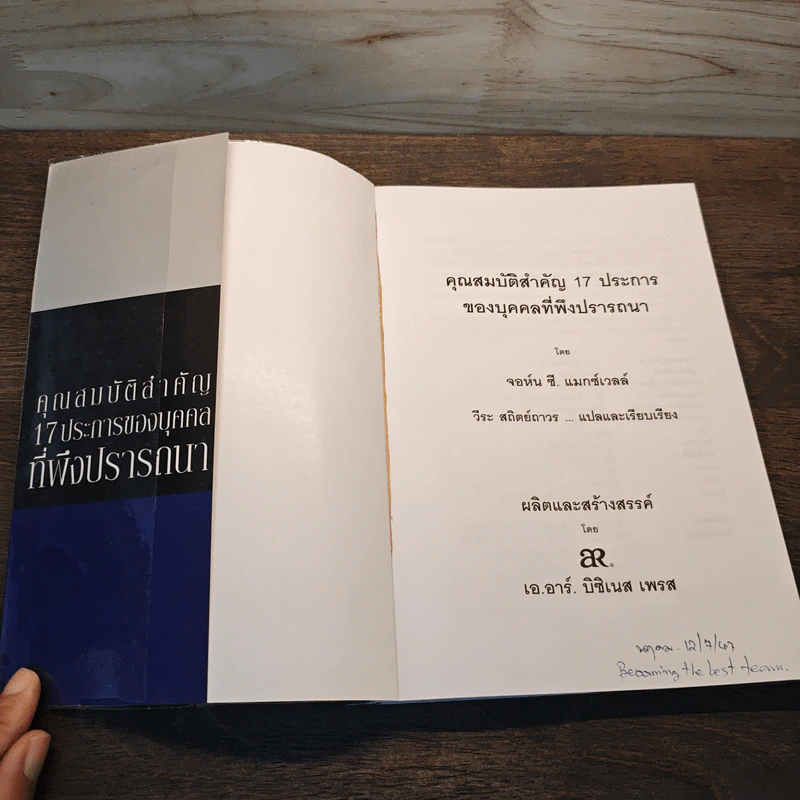 คุณสมบัติสำคัญ
17 ประการของบุคคล
ที่พึงปรารถนา
คุณสมบัติสำคัญ 17 ประการ
ของบุคคลที่พึงปรารถนา
โดย
จอห์น ซี. แมกซ์เวลล์
วีระ สถิตย์ถาวร ... แปลและเรียบเรียง
ผลิตและสร้างสรรค์
โดย
aR®
เอ.อาร์. บิซิเนส เพรส
12/7/47
Becoming the best team.